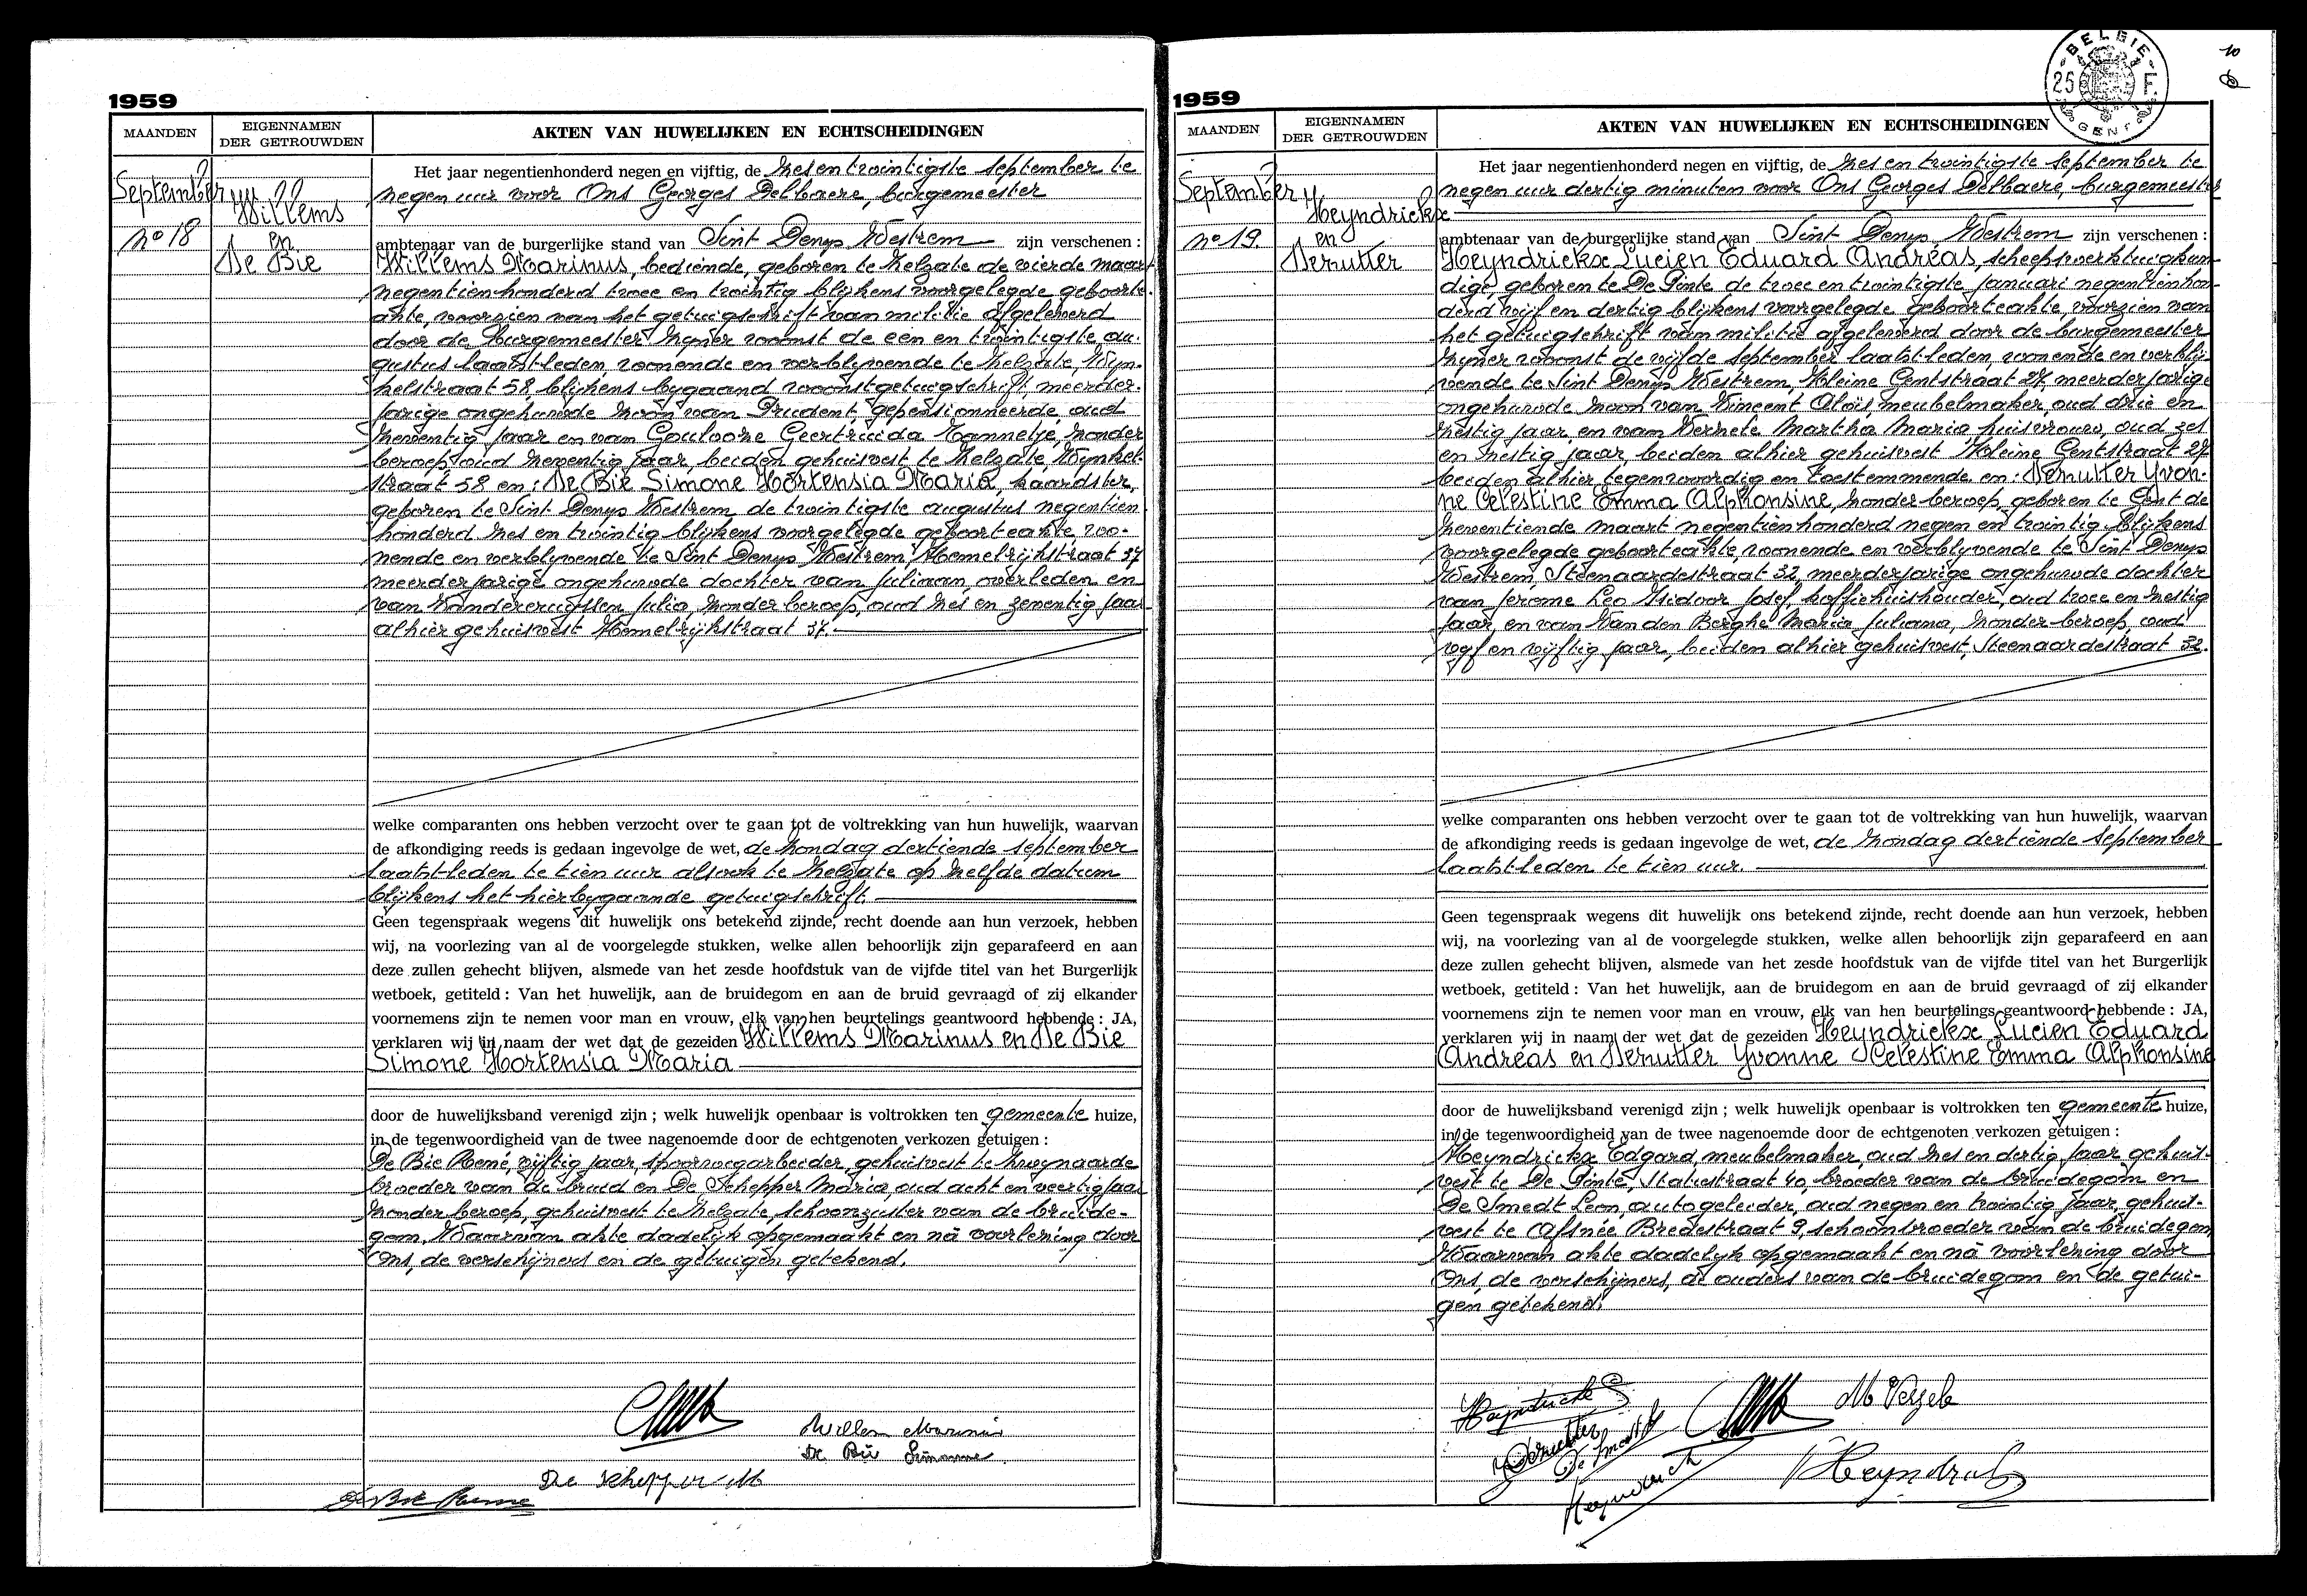 1959
MAANDEN
EIGENNAMEN
DER GETROUWDEN
AKTEN VAN HUWELIJKEN EN ECHTSCHEIDINGEN
September
no 18
Willems
en
De Bie
Het jaar negentienhonderd negen en vijftig, de zes en twintigste september te
negen uur voor Ons Georges Delbaere, burgemeester
ambtenaar van de burgerlijke stand van Sint Denys Westrem zijn verschenen :
Willems Marinus, bediende, geboren te Zelzate de vierde maart
negentienhonderd twee en twintig blijkens voorgelegde geboorte-
akte, voorzien van het getuigschrift van militie afgeleverd
door de Burgemeester zyner woonst de een en twintigste au-
gustus laatstleden, wonende en verblijvende te Zelzate, Wyn-
kelstraat 58, blijkens bygaand woonstgetuigschrift, meerder-
jarige ongehuwde zoon van Prudent, gepensionneerde, oud
zeventig jaar en van Geertruida zonder
beroep, oud zeventig jaar, beiden gehuisvest te Zelzate, Wynkel-
straat 58 en : De Bie Simone Hortensia Maria, kaardster,
geboren te Sint Denys Westrem de twintigste augustus negentien
honderd zes en twintig blijkens voorgelegde geboorteakte, wo-
nende en verblyvende te Sint Denys Westrem, Hemelrijkstraat 37
meerderjarige ongehuwde dochter van Juliaan, overleden en
van Julia, zonder beroep, oud zes en zeventig jaar
alhier gehuisvest Hemelrijkstraat 37.
welke comparanten ons hebben verzocht over te gaan tot de voltrekking van hun huwelijk, waarvan
de afkondiging reeds is gedaan ingevolge de wet, de zondag dertiende september
laatstleden te tien uur alsook te Zelzate op zelfde datum
blijkens het hierbygaande getuigschrift.
Geen tegenspraak wegens dit huwelijk ons betekend zijnde, recht doende aan hun verzoek, hebben
wij, na voorlezing van al de voorgelegde stukken, welke allen behoorlijk zijn geparafeerd en aan
deze zullen gehecht blijven, alsmede van het zesde hoofdstuk van de vijfde titel van het Burgerlijk
wetboek, getiteld : Van het huwelijk, aan de bruidegom en aan de bruid gevraagd of zij elkander
voornemens zijn te nemen voor man en vrouw, elk van hen beurtelings geantwoord hebbende : JA,
verklaren wij in naam der wet dat de gezeiden Willems Marinus en De Bie
Simone Hortensia Maria
door de huwelijksband verenigd zijn ; welk huwelijk openbaar is voltrokken ten gemeente huize,
in de tegenwoordigheid van de twee nagenoemde door de echtgenoten verkozen getuigen :
De Bie René, vijftig jaar, spoorwegarbeider, gehuisvest te Zwynaarde
broeder van de bruid en De Schepper Maria, oud acht en veertig jaar
zonder beroep, gehuisvest te Zelzate, schoonzuster van de bruide-
gom, Waarvan akte dadelyk opgemaakt en nà voorlezing door
Ons, de verschijners en de getuigen getekend.
Willem Marinus
De Bie Simonne
De Schepper M
De Bie Rene
1959
BELGIE
25 F.
GENT
10
MAANDEN
EIGENNAMEN
DER GETROUWDEN
AKTEN VAN HUWELIJKEN EN ECHTSCHEIDINGEN
September
no 19
Heyndrickx
en
Derutter
Het jaar negentienhonderd negen en vijftig, de zes en twintigste september te
negen uur dertig minuten voor Ons Georges Delbaere, burgemeester
ambtenaar van de burgerlijke stand van Sint Denys Westrem zijn verschenen :
Heyndrickx Lucien Eduard Andréas, scheepswerktuigkun-
dige, geboren te De Pinte de twee en twintigste januari negentienhon-
derd vijf en dertig blijkens voorgelegde geboorteakte, voorzien van
het getuigschrift van militie afgeleverd door de burgemeester
zyner woonst de vijfde september laatstleden, wonende en verblij-
vende te Sint Denys Westrem, Kleine Gentstraat 27, meerderjarige
ongehuwde zoon van Vincent Aloïs, meubelmaker, oud drie en
zestig jaar, en van Verzele Martha Maria huisvrouw, oud zes
en zestig jaar, beiden alhier gehuisvest Kleine Gentstraat 27
beiden alhier tegenwoordig en toestemmende en : Derutter Yvon-
ne Celestine Emma Alphonsine, zonder beroep, geboren te Gent de
zeventiende maart negentienhonderd negen en twintig blijkens
voorgelegde geboorteakte, wonende en verblyvende te Sint Denys
Westrem, Steenaardestraat 32, meerderjarige ongehuwde dochter
van Jerome Leo Isidoor Josef, koffiehuishouder, oud twee en zestig
jaar, en van Van den Berghe Maria Juliana, zonder beroep, oud
vyf en vijftig jaar, beiden alhier gehuisvest, Steenaardestraat 32.
welke comparanten ons hebben verzocht over te gaan tot de voltrekking van hun huwelijk, waarvan
de afkondiging reeds is gedaan ingevolge de wet, de zondag dertiende september
laatstleden te tien uur.
Geen tegenspraak wegens dit huwelijk ons betekend zijnde, recht doende aan hun verzoek, hebben
wij, na voorlezing van al de voorgelegde stukken, welke allen behoorlijk zijn geparafeerd en aan
deze zullen gehecht blijven, alsmede van het zesde hoofdstuk van de vijfde titel van het Burgerlijk
wetboek, getiteld : Van het huwelijk, aan de bruidegom en aan de bruid gevraagd of zij elkander
voornemens zijn te nemen voor man en vrouw, elk van hen beurtelings geantwoord hebbende : JA,
verklaren wij in naam der wet dat de gezeiden Heyndrickx Lucien Eduard
Andréas en Derutter Yvonne Celestine Emma Alphonsine
door de huwelijksband verenigd zijn ; welk huwelijk openbaar is voltrokken ten gemeente huize,
in de tegenwoordigheid van de twee nagenoemde door de echtgenoten verkozen getuigen :
Heyndrickx Edgard, meubelmaker, oud zes en dertig jaar gehuis-
vest te De Pinte, Statiestraat 40, broeder van de bruidegom en
De Smedt Leon, autogeleider, oud negen en twintig jaar, gehuis-
vest te Afsnée Bredestraat 9, schoonbroeder van de bruidegom,
Waarvan akte dadelyk opgemaakt en nà voorlezing door
Ons, de verschijners, de ouders van de bruidegom en de getui-
gen getekend.
M Verzele